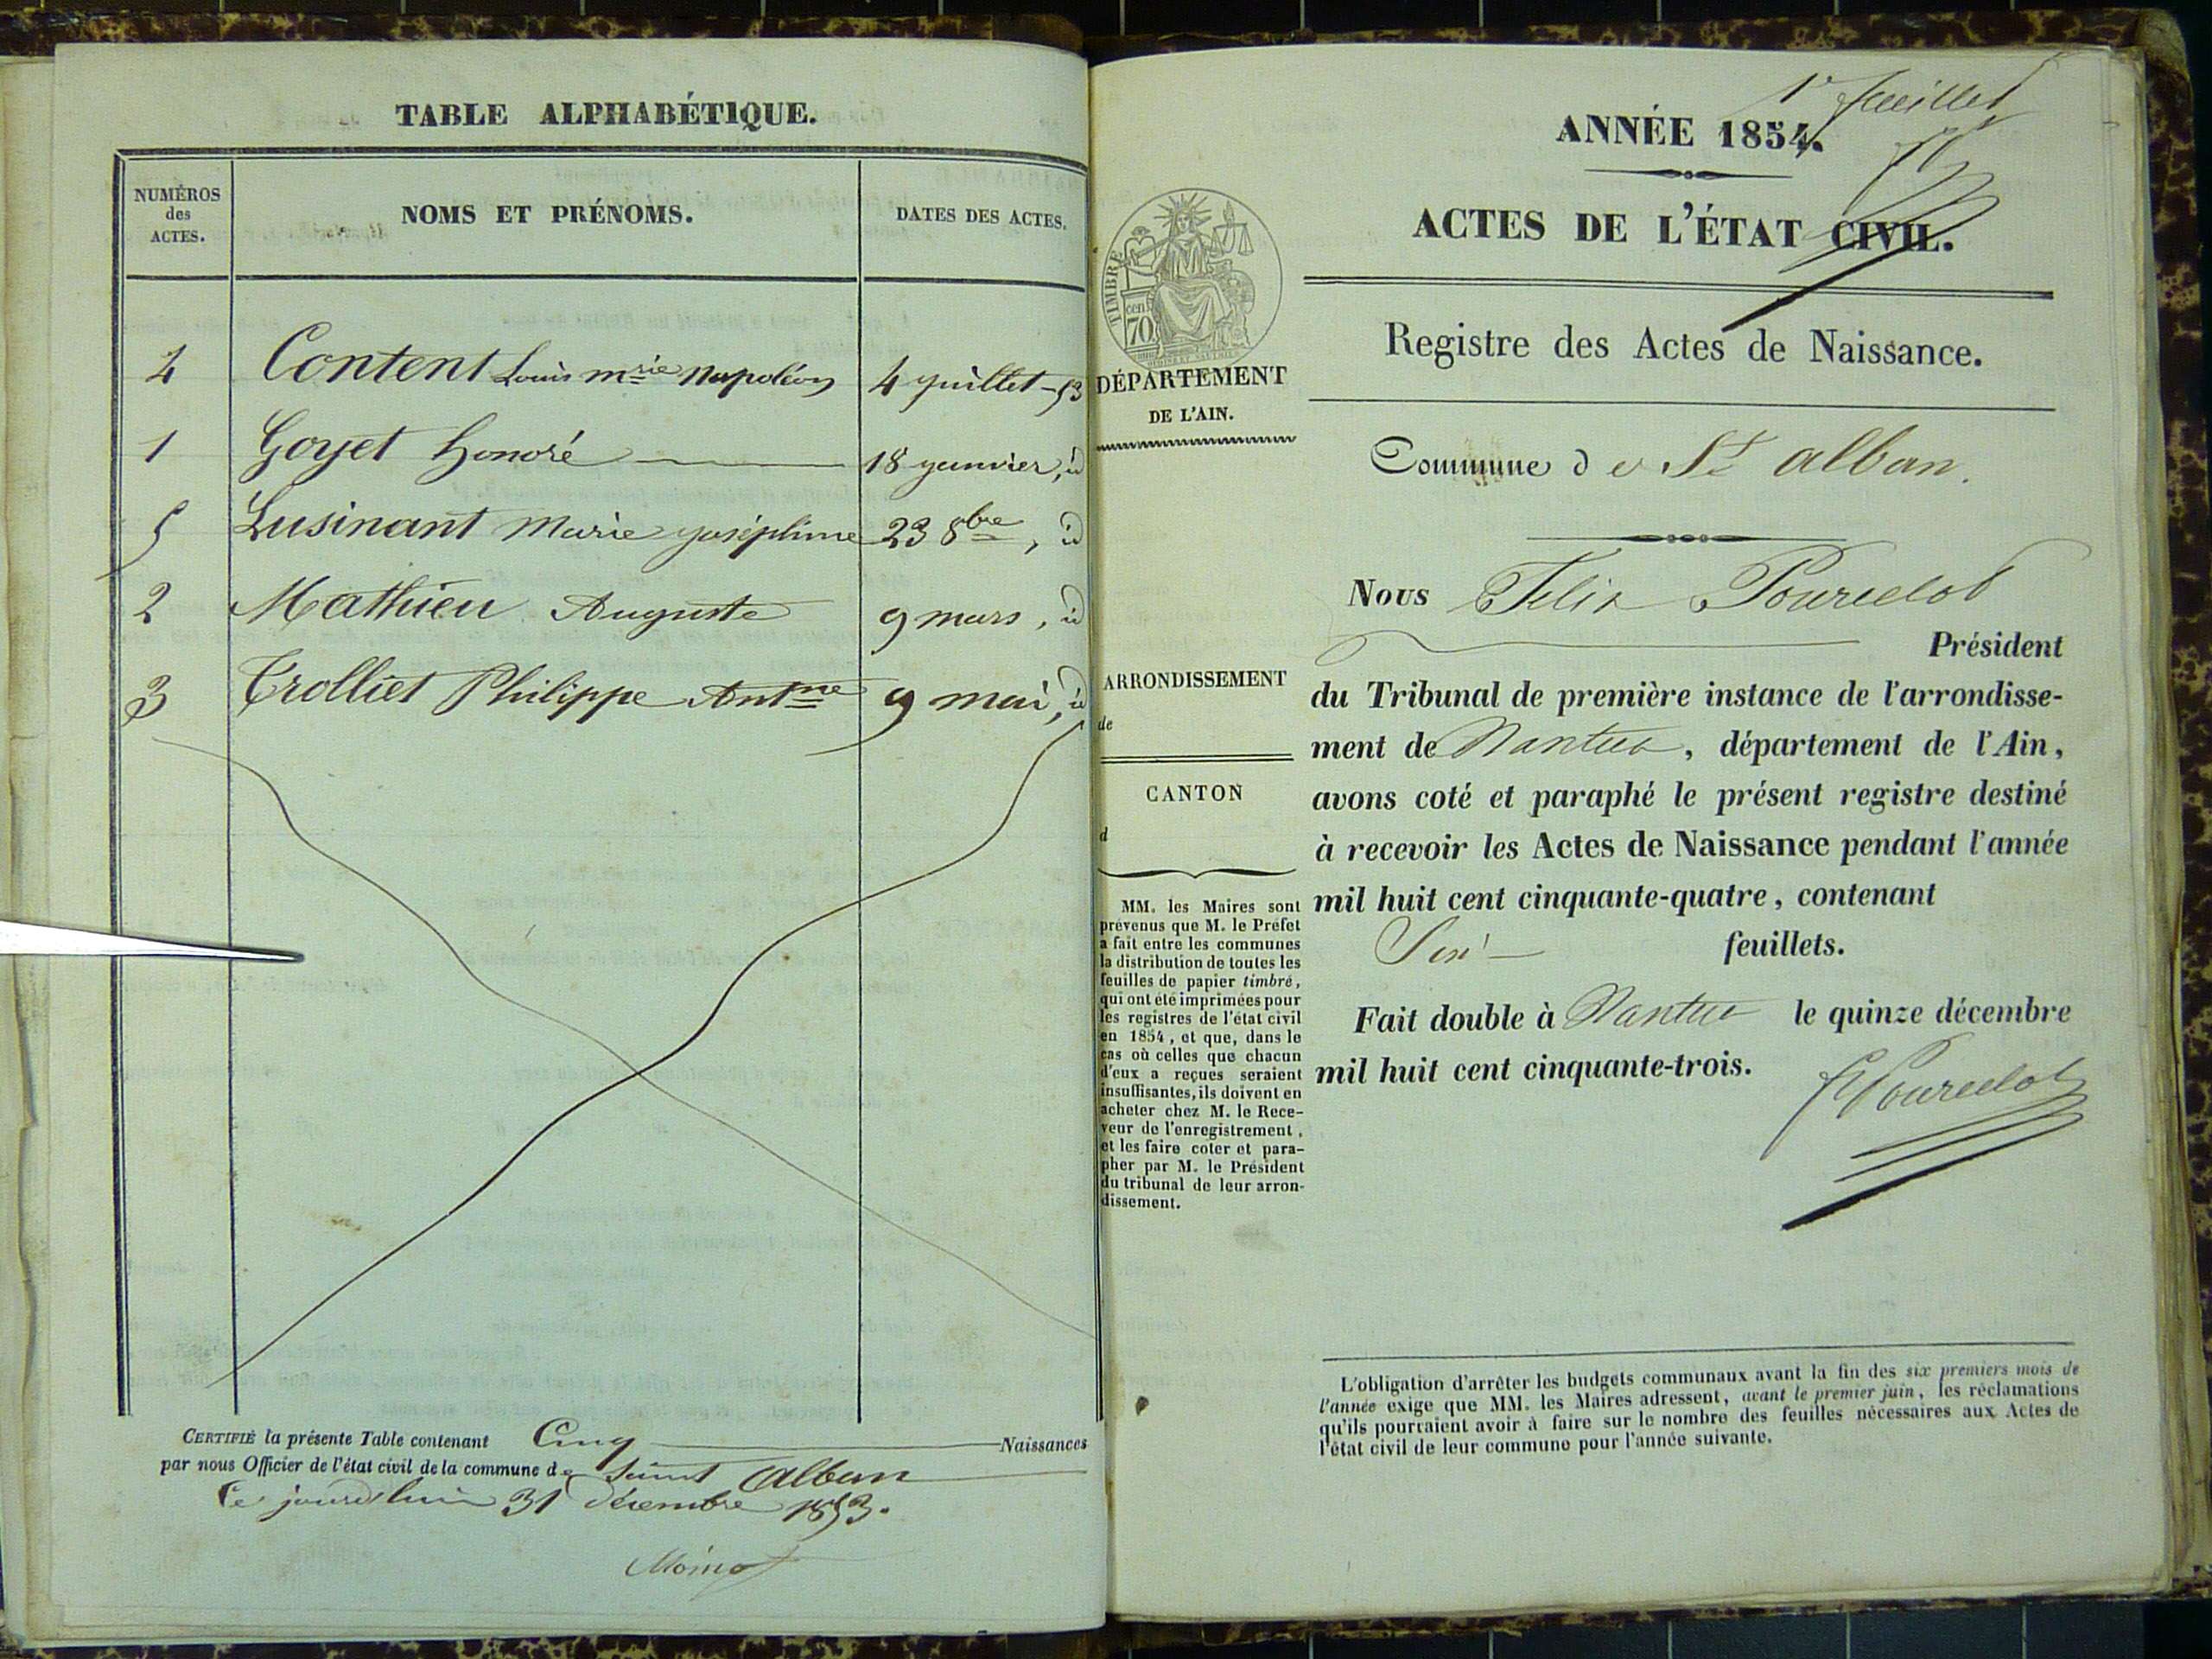 TABLE ALPHABÉTIQUE.
NUMÉROS des ACTES. NOMS ET PRÉNOMS. DATES DES ACTES.
4 Content Louis mrie Napoléon 4 juillet - 53
1 Goyet honoré 18 janvier, id
5 Lusinant Marie joséphine 23 8bre, id
2 Mathieu Auguste 9 mars, id
3 Trolliet Philippe Antne 9 mai, id
CERTIFIÉ la présente Table contenant Cinq Naissances
par nous Officier de l'état civil de la commune de Saint Alban
Ce jourd'hui 31 décembre 1853.
1er feuillet
ANNÉE 1854.
ACTES DE L'ÉTAT CIVIL.
TIMBRE
cen.
70
DÉPARTEMENT
DE L'AIN.
ARRONDISSEMENT
de
CANTON
d
MM. les Maires sont
prévenus que M. le Préfet
a fait entre les communes
la distribution de toutes les
feuilles de papier timbré,
qui ont été imprimées pour
les registres de l'état civil
en 1854, et que, dans le
cas où celles que chacun
d'eux a reçues seraient
insuffisantes, ils doivent en
acheter chez M. le Rece-
veur de l'enregistrement,
et les faire coter et para-
pher par M. le Président
du tribunal de leur arron-
dissement.
Registre des Actes de Naissance.
Commune de St alban.
Nous Felix Pourcelot
Président
du Tribunal de première instance de l'arrondisse-
ment de Nantua, département de l'Ain,
avons coté et paraphé le présent registre destiné
à recevoir les Actes de Naissance pendant l'année
mil huit cent cinquante-quatre, contenant
feuillets.
Fait double à Nantua le quinze décembre
mil huit cent cinquante-trois.
Pourcelot
L'obligation d'arrêter les budgets communaux avant la fin des six premiers mois de
l'année exige que MM. les Maires adressent, avant le premier juin, les réclamations
qu'ils pourraient avoir à faire sur le nombre des feuilles nécessaires aux Actes de
l'état civil de leur commune pour l'année suivante.